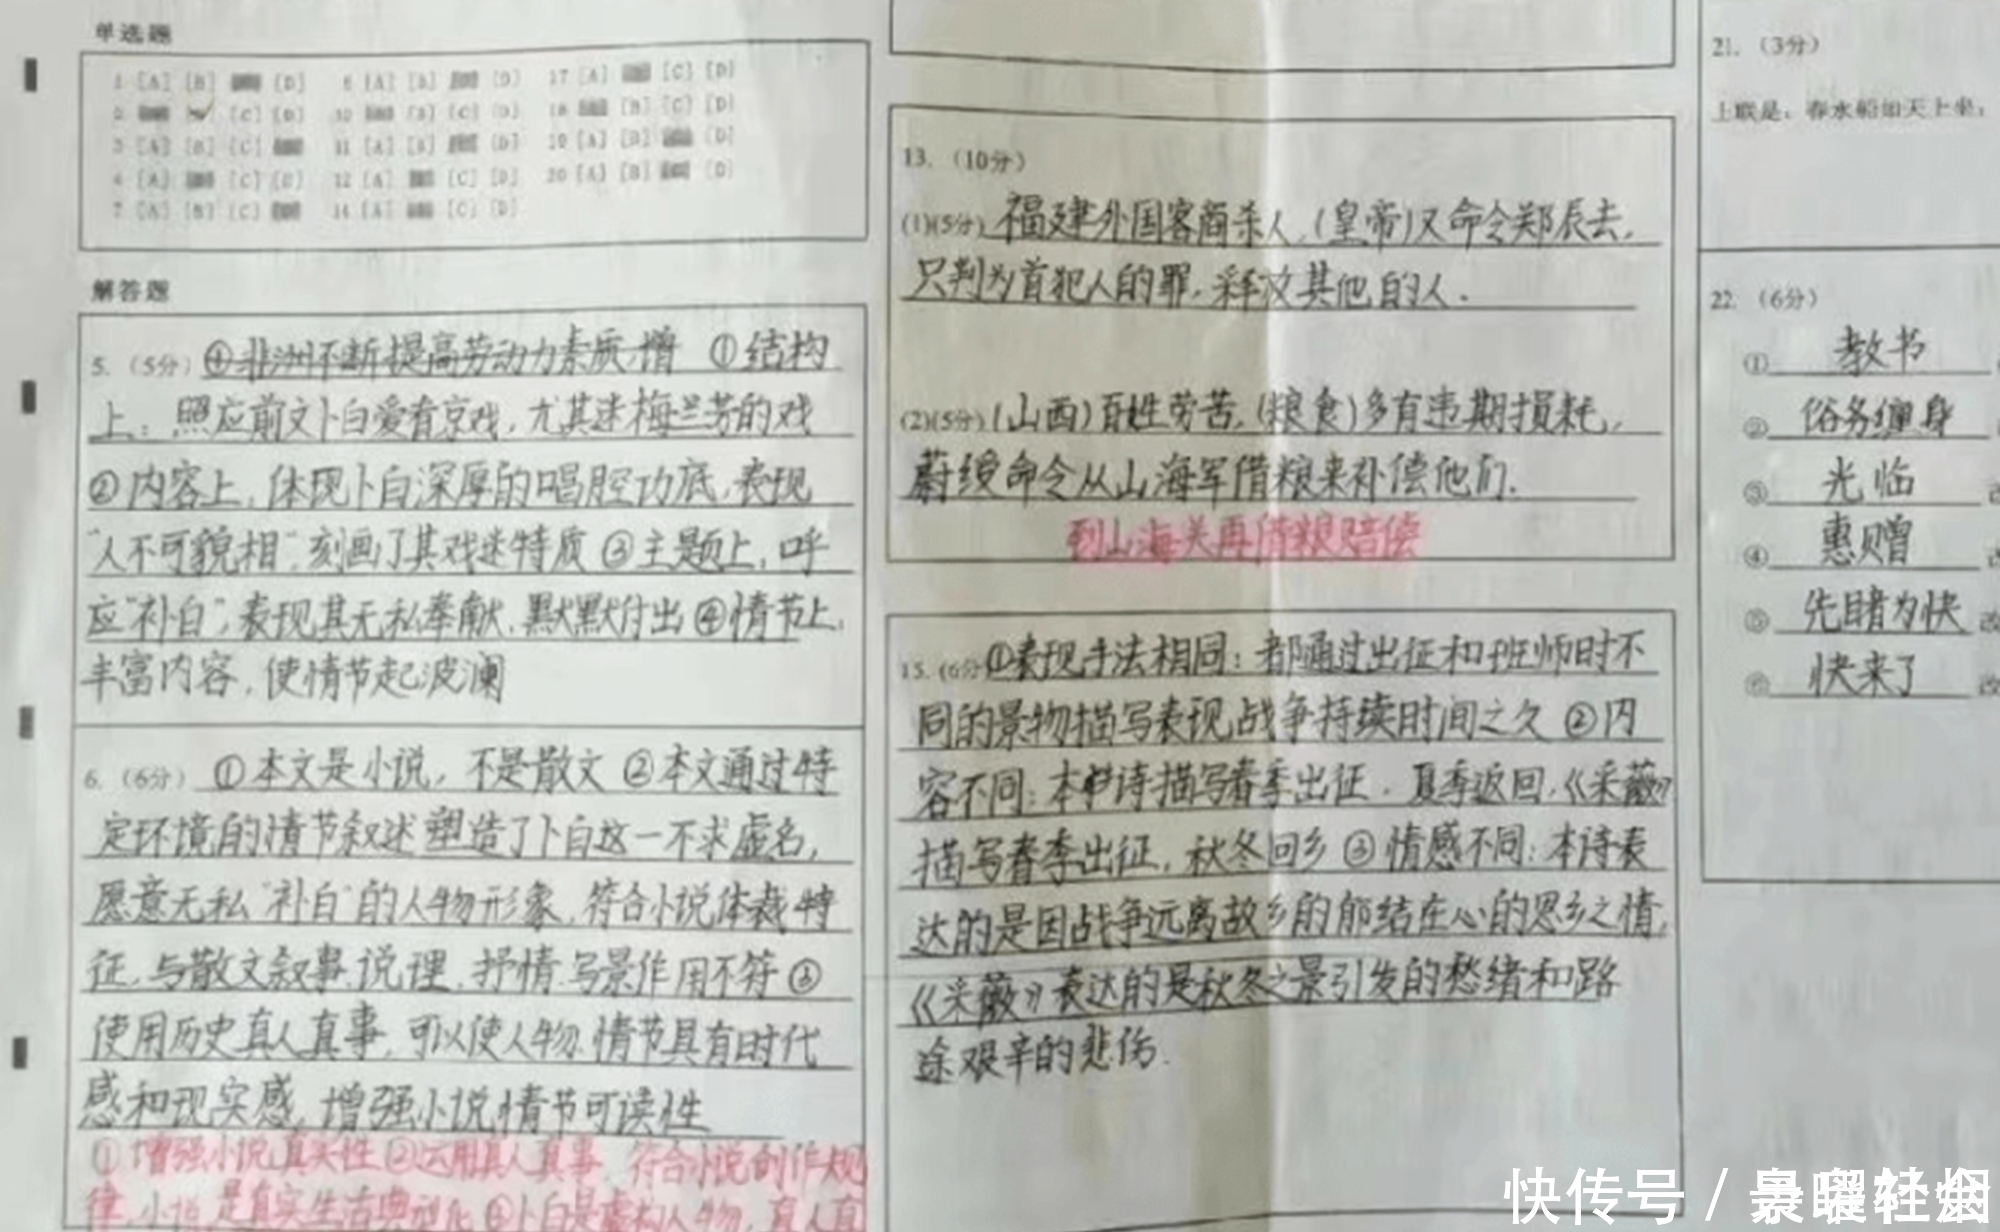 单选题
1 [A] [B] [D] 6 [A] [B] [D] 17 [A] [C] [D]
[C] [D] 10 [B] [C] [D] 18 [B] [C] [D]
3 [A] [B] [C] 11 [A] [B] [D] 19 [A] [B] [D]
4 [A] [C] [D] 12 [A] [C] [D] 20 [A] [B] [D]
7 [A] [B] [C] 14 [A] [C] [D]
解答题
5. (5分) ④非洲不断提高劳动力素质,增 ①结构
上：照应前文卜白爱看京戏，尤其迷梅兰芳的戏
②内容上，体现卜白深厚的唱腔功底，表现
“人不可貌相”，刻画了其戏迷特质③主题上，呼
应“补白”，表现其无私奉献、默默付出④情节上，
丰富内容，使情节起波澜
6. (6分) ①本文是小说，不是散文②本文通过特
定环境的情节叙述塑造了卜白这一不求虚名，
愿意无私“补白”的人物形象，符合小说体裁特
征，与散文叙事、说理、抒情、写景作用不符③
使用历史真人真事，可以使人物、情节具有时代
感和现实感，增强小说情节可读性
①增强小说真实性②运用真人真事，符合小说创作规
律，小说是真实生活典型化③卜白是虚构人物，真人真
13. (10分)
(1)(5分) 福建外国客商杀人，(皇帝)又命令郑辰去，
只判为首犯人的罪，释放其他的人.
(2)(5分) (山西)百姓劳苦，(粮食)多有违期损耗，
蔚绶命令从山海军借粮来补偿他们.
到山海关再借粮赔偿
15. (6分) ①表现手法相同：都通过出征和班师时不
同的景物描写表现战争持续时间之久②内
容不同：本诗描写春季出征，夏季返回，《采薇》
描写春季出征，秋冬回乡③情感不同：本诗表
达的是因战争远离故乡的郁结在心的思乡之情，
《采薇》表达的是秋冬之景引发的愁绪和路
途艰辛的悲伤.
21. (3分)
上联是：春水船如天上坐；
22. (6分)
① 教书
② 俗务缠身
③ 光临
④ 惠赠
⑤ 先睹为快 改
⑥ 快来了 改
快传号 /